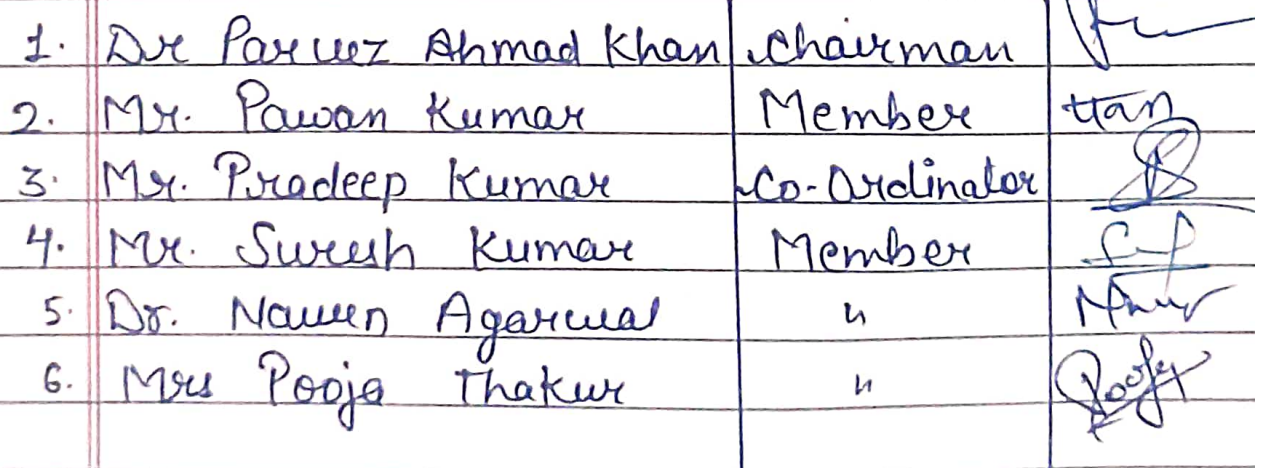 1. Dr Parvez Ahmad Khan Chairman
2. Mr. Pawan Kumar Member
3. Mr. Pradeep Kumar Co-Ordinator
4. Mr. Suresh Kumar Member
5. Dr. Naveen Agarwal "
6. Mrs Pooja Thakur " Pooja